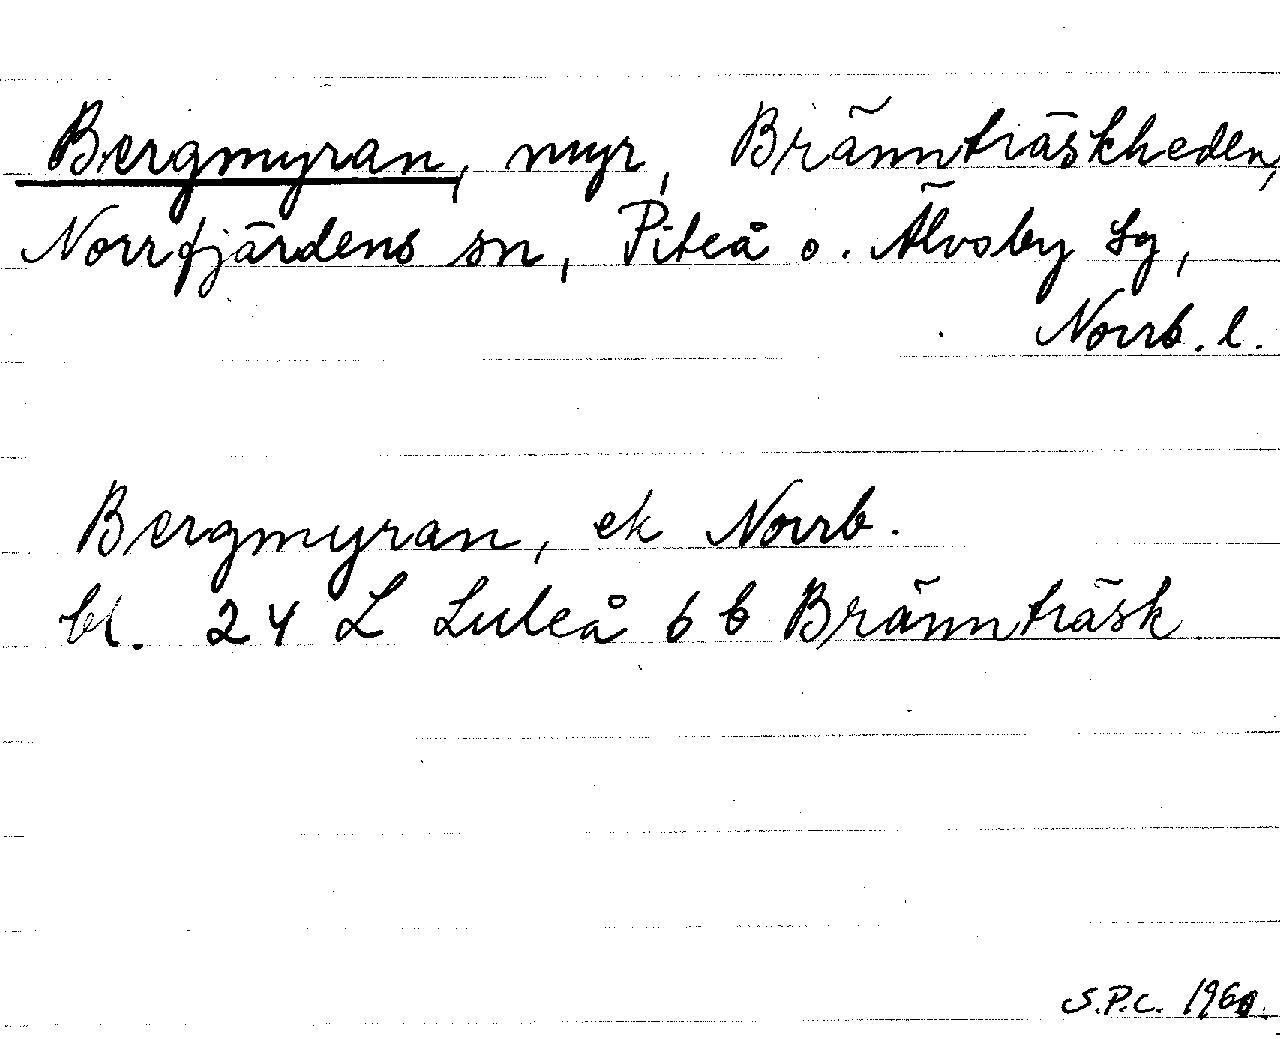 Bergmyran, myr, Brännträskheden,
Norrfjärdens sn, Piteå o. Älvsby tg,
Norrb. l.
Bergmyran, ek Norrb.
bl. 24 L Luleå 6 b Brännträsk
S.P.C. 1960.